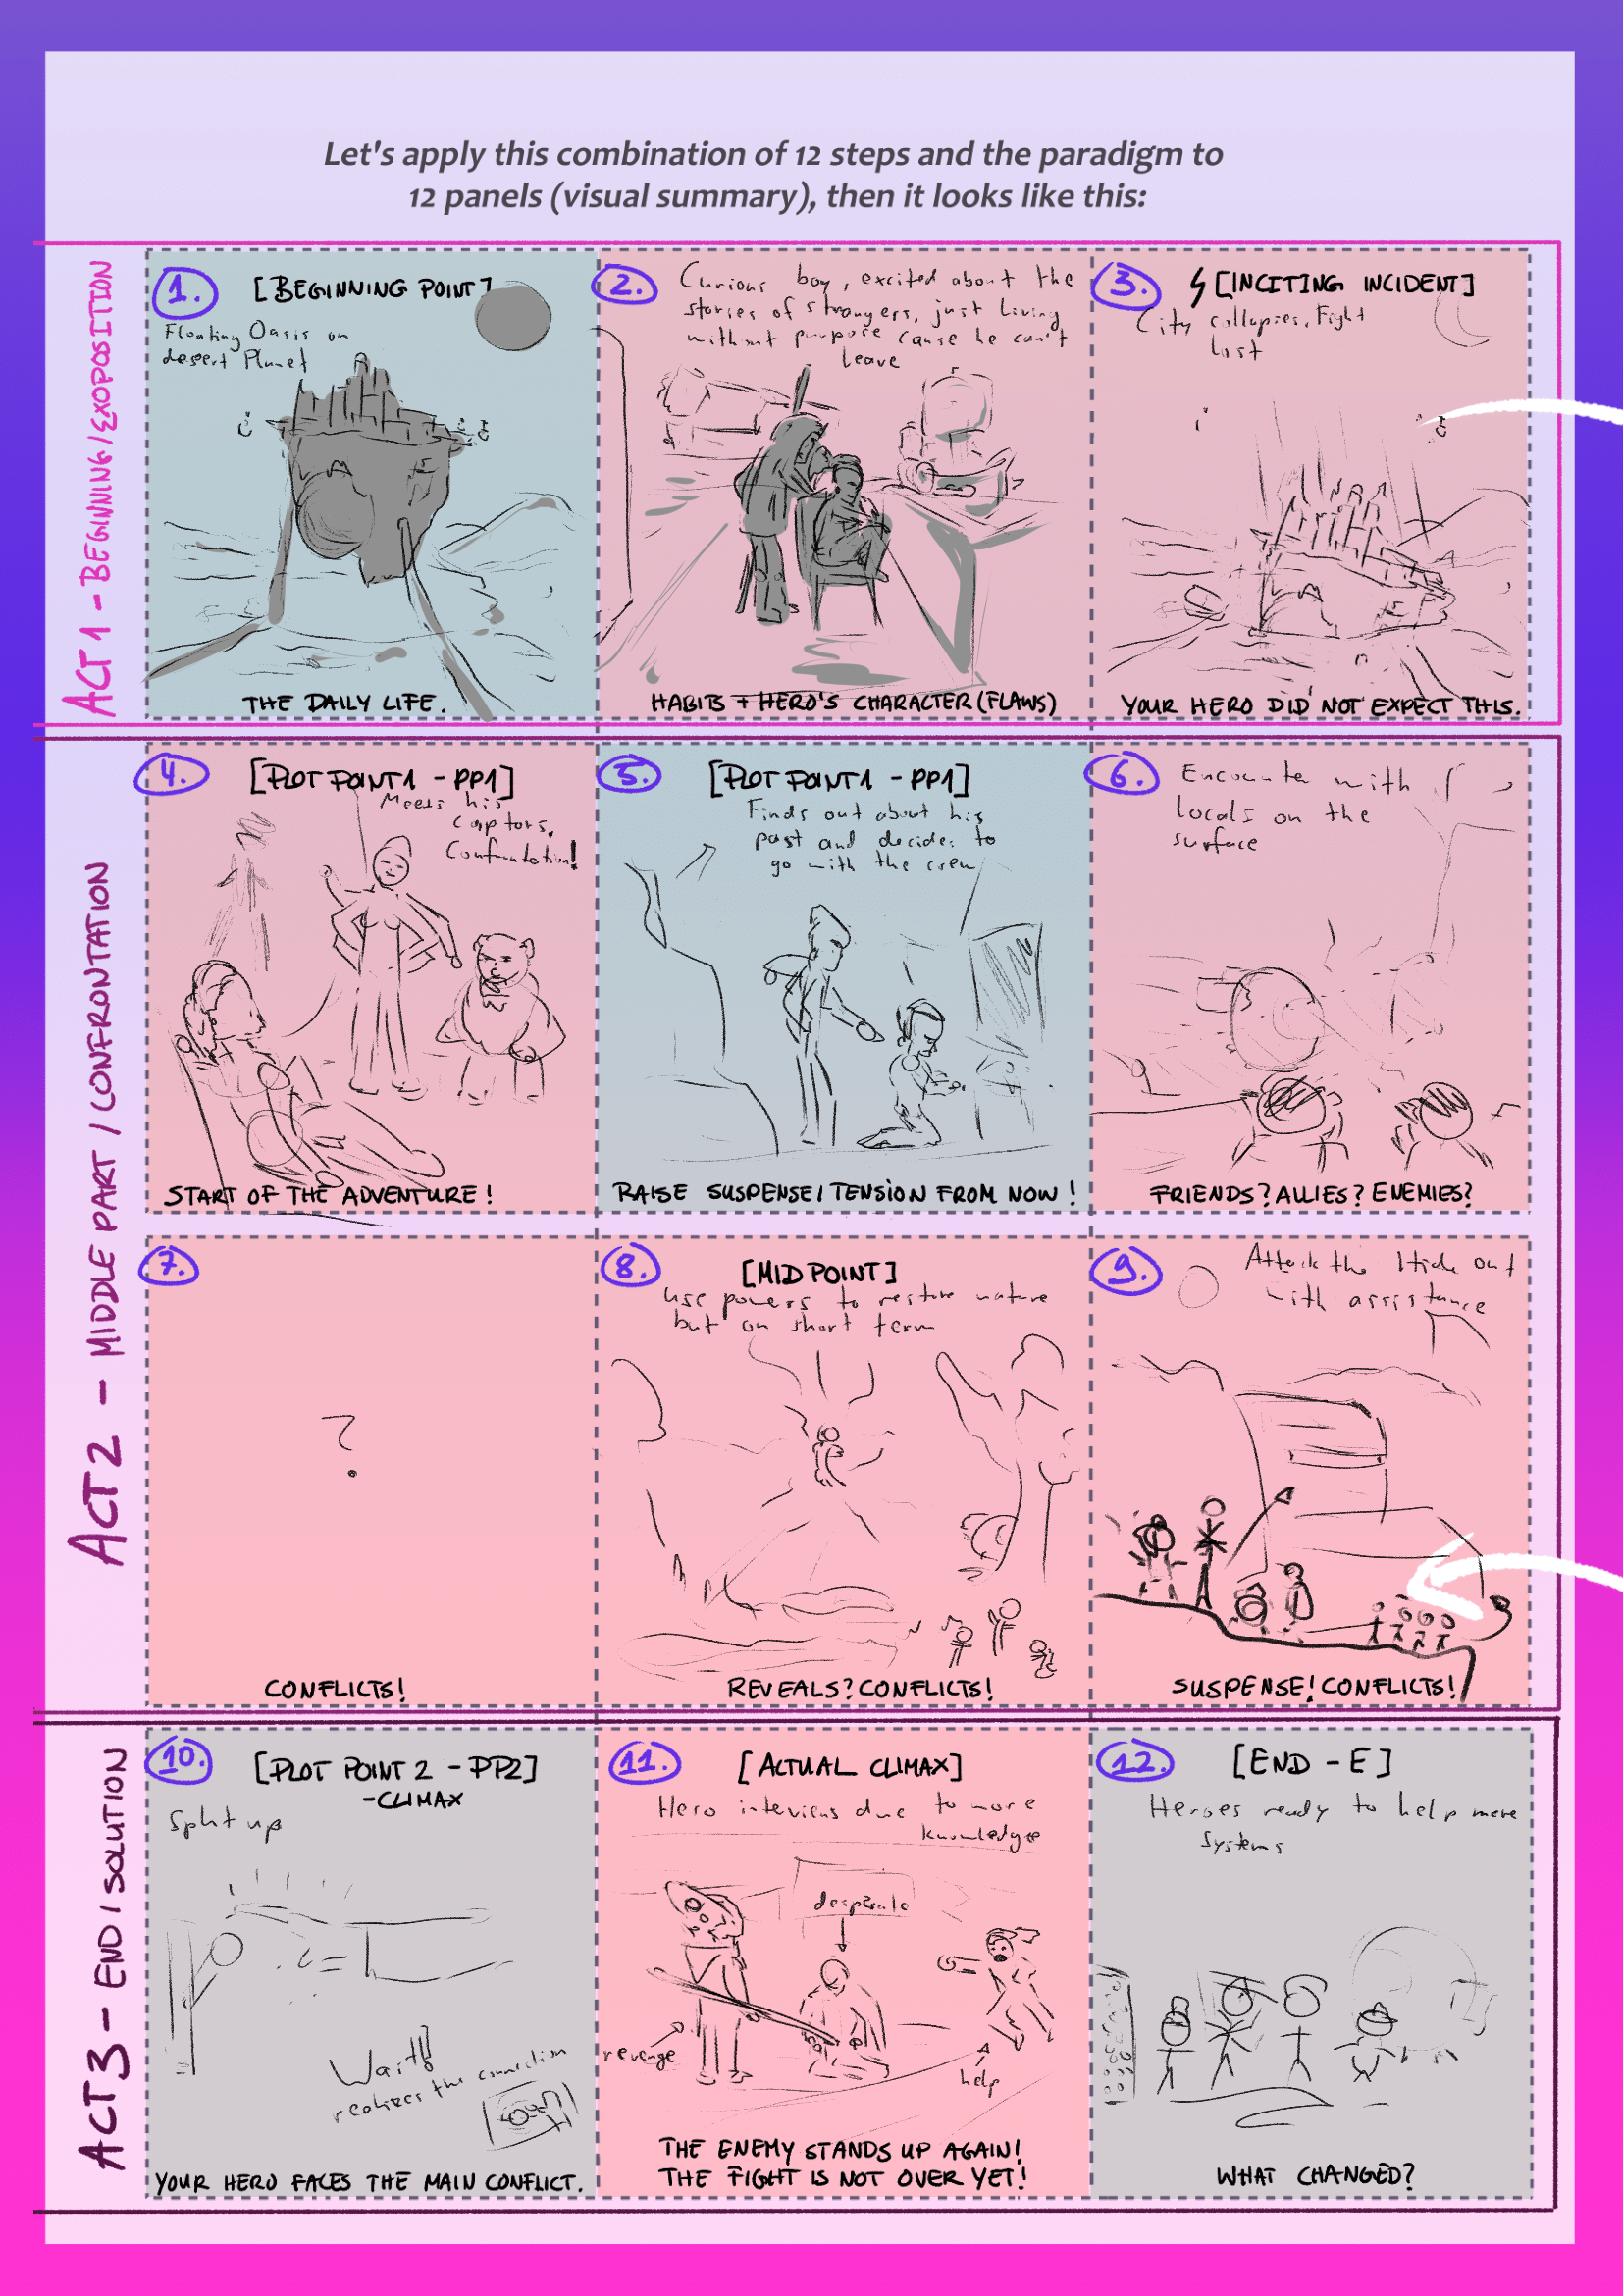 Let's apply this combination of 12 steps and the paradigm to
12 panels (visual summary), then it looks like this:
ACT 1 - BEGINNING/EXOPOSITION
1.
[BEGINNING POINT]
Floating Oasis on
desert Planet
THE DAILY LIFE.
2.
Curious boy, excited about the
stories of strangers, just living
without purpose cause he can't
leave
HABITS + HERO'S CHARACTER (FLAWS)
3.
[INCITING INCIDENT]
City collapses, Fight
lost
YOUR HERO DID NOT EXPECT THIS.
ACT 2 - MIDDLE PART / CONFRONTATION
4.
[PLOT POINT 1 - PP1]
Meets his
captors,
Confrontation!
START OF THE ADVENTURE!
5.
[PLOT POINT 1 - PP1]
Finds out about his
past and decides to
go with the crew
RAISE SUSPENSE/TENSION FROM NOW!
6.
Encounter with
locals on the
surface
FRIENDS? ALLIES? ENEMIES?
7.
?
CONFLICTS!
8.
[MIDPOINT]
use powers to restore nature
but on short term
REVEALS? CONFLICTS!
9.
Attack the Hide out
with assistance
SUSPENSE! CONFLICTS!
ACT 3 - END / SOLUTION
10.
[PLOT POINT 2 - PP2]
-CLIMAX
Split up
Wait!
realizes the connection
YOUR HERO FACES THE MAIN CONFLICT.
11.
[ACTUAL CLIMAX]
Hero interviens due to more
knowledge
desperate
revenge
help
THE ENEMY STANDS UP AGAIN!
THE FIGHT IS NOT OVER YET!
12.
[END - E]
Heroes ready to help more
systems
WHAT CHANGED?